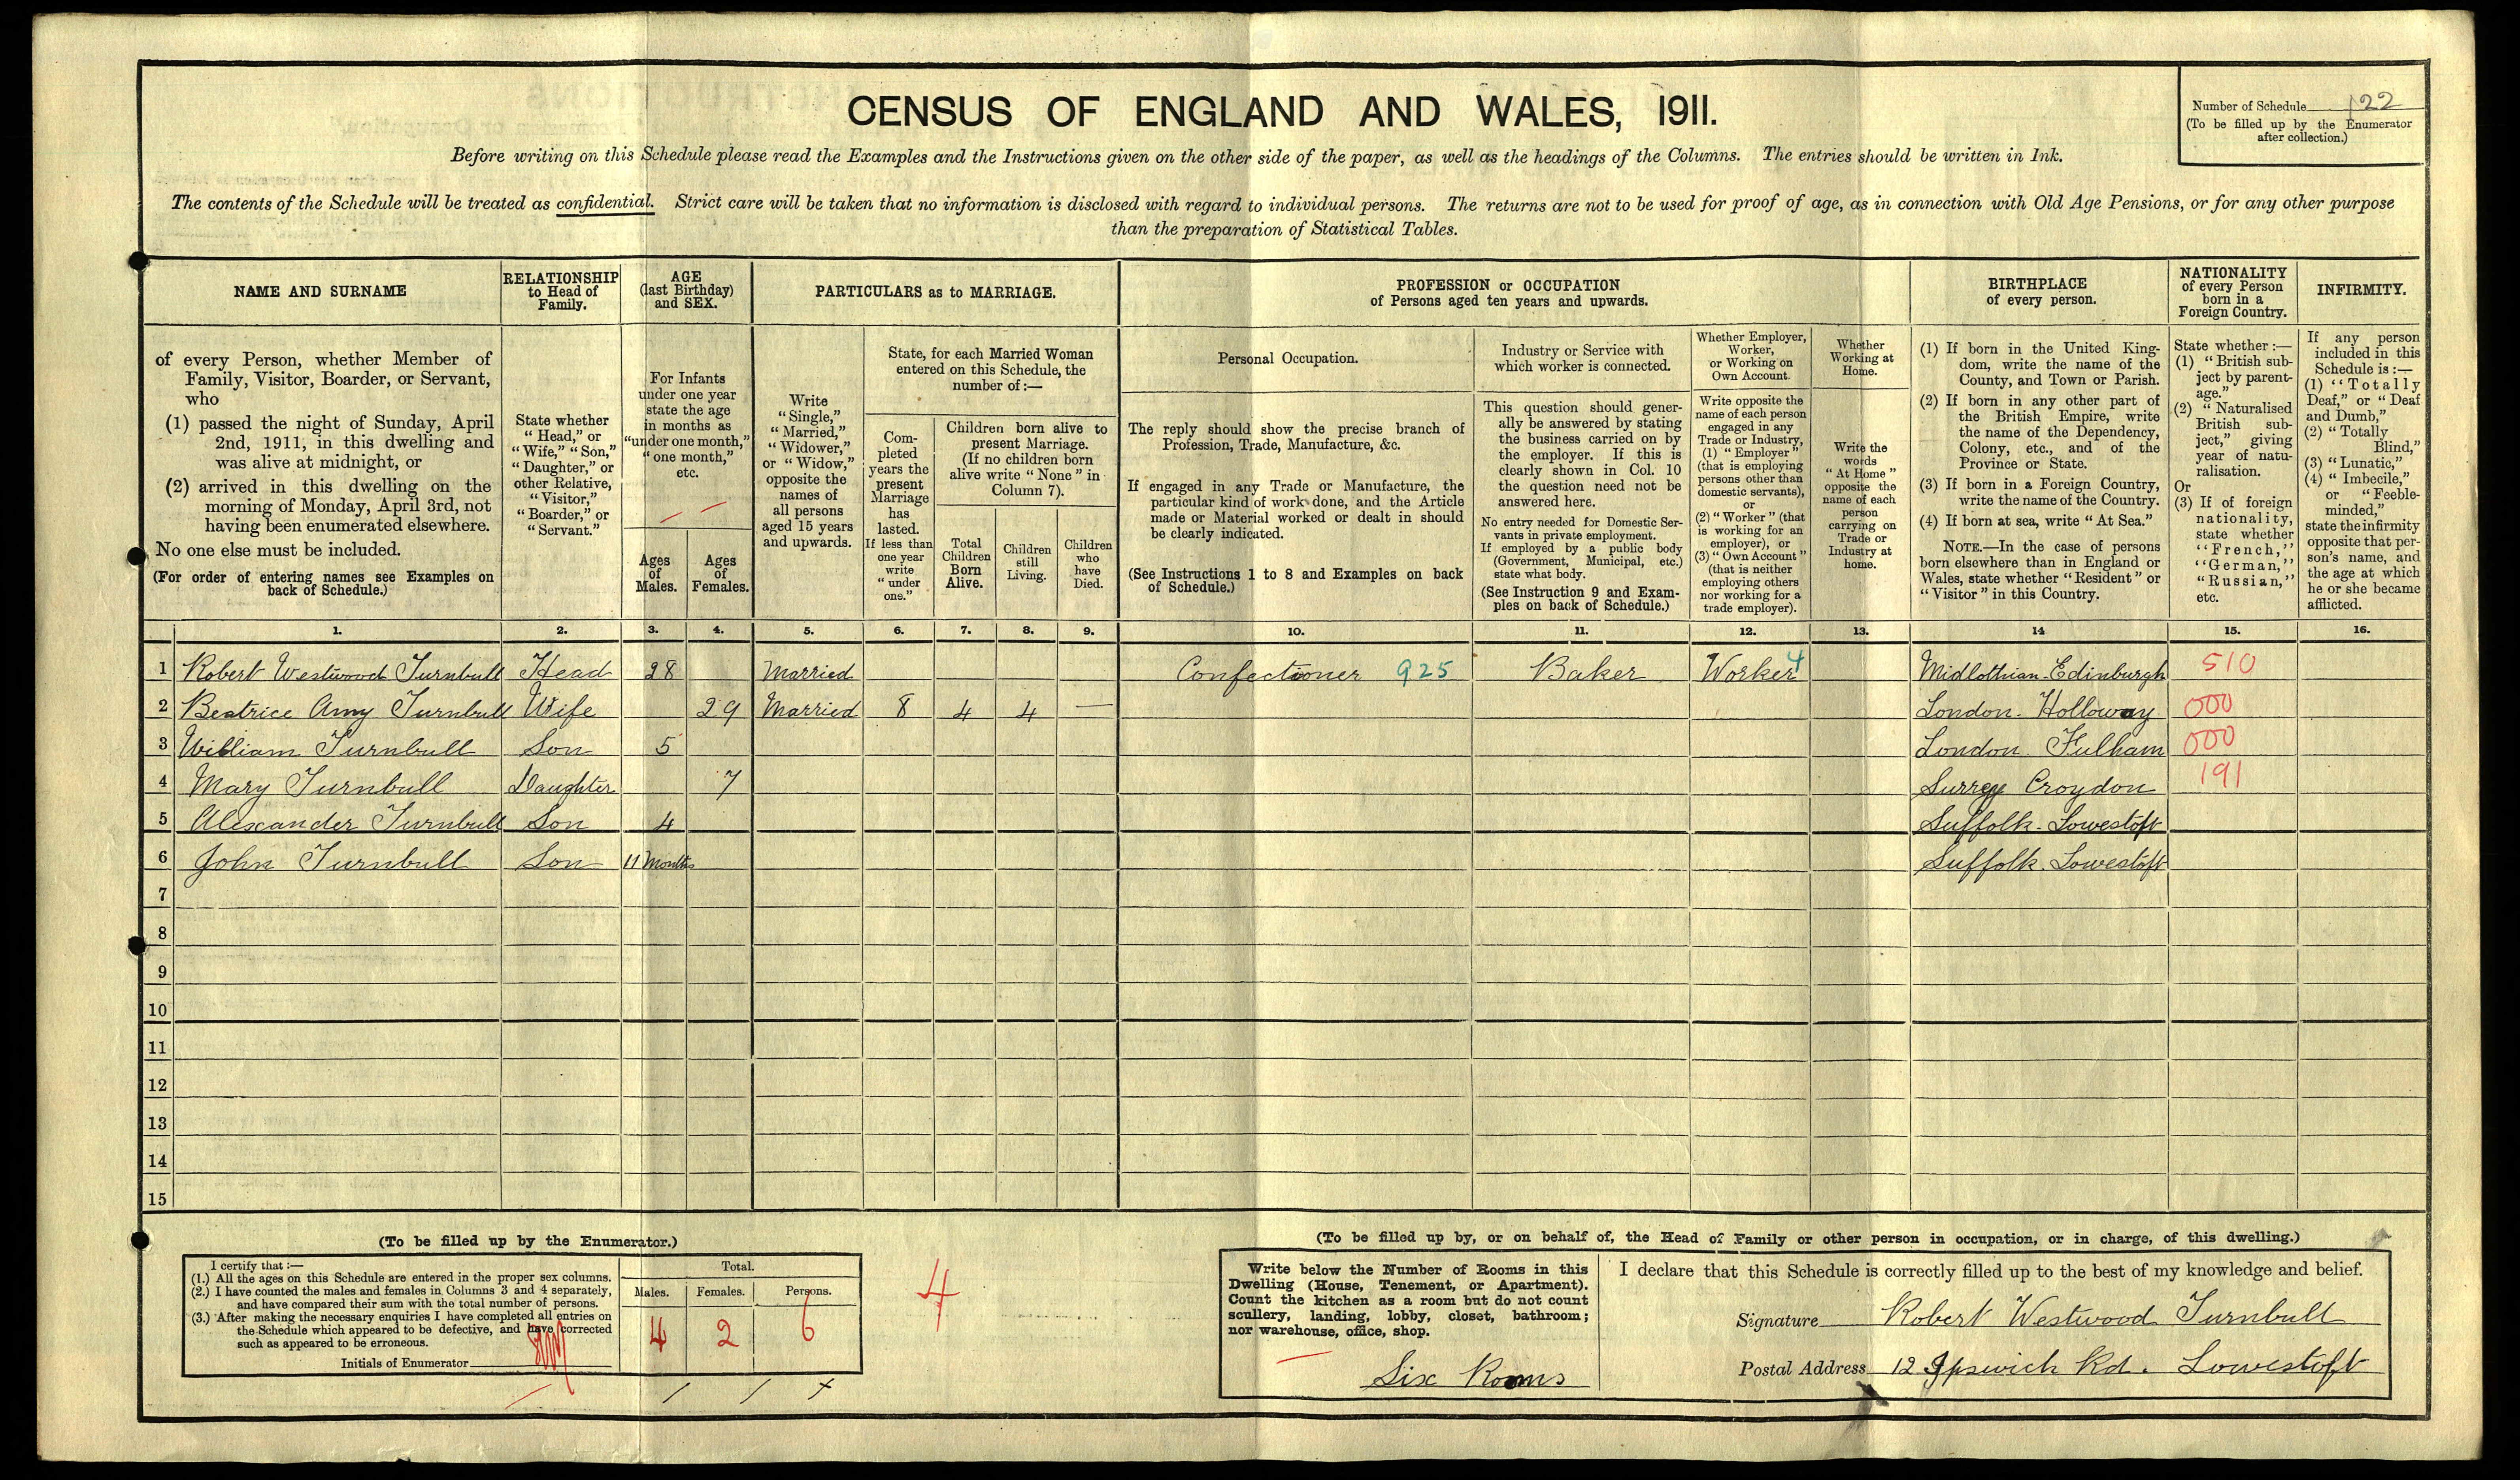 CENSUS OF ENGLAND AND WALES, 1911.
Number of Schedule 122
(To be filled up by the Enumerator
after collection.)
Before writing on this Schedule please read the Examples and the Instructions given on the other side of the paper, as well as the headings of the Columns. The entries should be written in Ink.
The contents of the Schedule will be treated as confidential. Strict care will be taken that no information is disclosed with regard to individual persons. The returns are not to be used for proof of age, as in connection with Old Age Pensions, or for any other purpose
than the preparation of Statistical Tables.
NAME AND SURNAME
of every Person, whether Member of
Family, Visitor, Boarder, or Servant,
who
(1) passed the night of Sunday, April
2nd, 1911, in this dwelling and
was alive at midnight, or
(2) arrived in this dwelling on the
morning of Monday, April 3rd, not
having been enumerated elsewhere.
No one else must be included.
(For order of entering names see Examples on
back of Schedule.)
RELATIONSHIP
to Head of
Family.
State whether
"Head," or
"Wife," "Son,"
"Daughter," or
other Relative,
"Visitor,"
"Boarder," or
"Servant."
AGE
(last Birthday)
and SEX.
For Infants
under one year
state the age
in months as
"under one month,"
"one month,"
etc.
Ages
of
Males.
Ages
of
Females.
PARTICULARS as to MARRIAGE.
Write
"Single,"
"Married,"
"Widower,"
or "Widow,"
opposite the
names of
all persons
aged 15 years
and upwards.
State, for each Married Woman
entered on this Schedule, the
number of:—
Com-
pleted
years the
present
Marriage
has
lasted.
If less than
one year
write
"under
one."
Children born alive to
present Marriage.
(If no children born
alive write "None" in
Column 7).
Total
Children
Born
Alive.
Children
still
Living.
Children
who
have
Died.
PROFESSION or OCCUPATION
of Persons aged ten years and upwards.
Personal Occupation.
The reply should show the precise branch of
Profession, Trade, Manufacture, &c.
If engaged in any Trade or Manufacture, the
particular kind of work done, and the Article
made or Material worked or dealt in should
be clearly indicated.
(See Instructions 1 to 8 and Examples on back
of Schedule.)
Industry or Service with
which worker is connected.
This question should gener-
ally be answered by stating
the business carried on by
the employer. If this is
clearly shown in Col. 10
the question need not be
answered here.
No entry needed for Domestic Ser-
vants in private employment.
If employed by a public body
(Government, Municipal, etc.)
state what body.
(See Instruction 9 and Exam-
ples on back of Schedule.)
Whether Employer,
Worker,
or Working on
Own Account.
Write opposite the
name of each person
engaged in any
Trade or Industry,
(1) "Employer"
(that is employing
persons other than
domestic servants),
or
(2) "Worker" (that
is working for an
employer), or
(3) "Own Account"
(that is neither
employing others
nor working for a
trade employer).
Whether
Working at
Home.
Write the
words
"At Home"
opposite the
name of each
person
carrying on
Trade or
Industry at
home.
BIRTHPLACE
of every person.
(1) If born in the United King-
dom, write the name of the
County, and Town or Parish.
(2) If born in any other part of
the British Empire, write
the name of the Dependency,
Colony, etc., and of the
Province or State.
(3) If born in a Foreign Country,
write the name of the Country.
(4) If born at sea, write "At Sea."
NOTE.—In the case of persons
born elsewhere than in England or
Wales, state whether "Resident" or
"Visitor" in this Country.
NATIONALITY
of every Person
born in a
Foreign Country.
State whether:—
(1) "British sub-
ject by parent-
age."
(2) "Naturalised
British sub-
ject," giving
year of natu-
ralisation.
Or
(3) If of foreign
nationality,
state whether
"French,"
"German,"
"Russian,"
etc.
INFIRMITY.
If any person
included in this
Schedule is:—
(1) "Totally
Deaf," or "Deaf
and Dumb,"
(2) "Totally
Blind,"
(3) "Lunatic,"
(4) "Imbecile,"
or "Feeble-
minded,"
state the infirmity
opposite that per-
son's name, and
the age at which
he or she became
afflicted.
1. 2. 3. 4. 5. 6. 7. 8. 9. 10. 11. 12. 13. 14 15. 16.
1 Robert Westwood Turnbull Head 28 Married Confectioner 925 Baker Worker 4 Midlothian-Edinburgh 510
2 Beatrice Amy Turnbull Wife 29 Married 8 4 4 — London-Holloway 000
3 William Turnbull Son 5 London Fulham 000
4 Mary Turnbull Daughter 7 Surrey Croydon 191
5 Alexander Turnbull Son 4 Suffolk-Lowestoft
6 John Turnbull Son 11 Months Suffolk-Lowestoft
7
8
9
10
11
12
13
14
15
(To be filled up by the Enumerator.)
I certify that:—
(1.) All the ages on this Schedule are entered in the proper sex columns.
(2.) I have counted the males and females in Columns 3 and 4 separately,
and have compared their sum with the total number of persons.
(3.) After making the necessary enquiries I have completed all entries on
the Schedule which appeared to be defective, and have corrected
such as appeared to be erroneous.
Initials of Enumerator
Total.
Males. Females. Persons.
4 2 6
4
(To be filled up by, or on behalf of, the Head of Family or other person in occupation, or in charge, of this dwelling.)
Write below the Number of Rooms in this
Dwelling (House, Tenement, or Apartment).
Count the kitchen as a room but do not count
scullery, landing, lobby, closet, bathroom;
nor warehouse, office, shop.
Six Rooms
I declare that this Schedule is correctly filled up to the best of my knowledge and belief.
Signature Robert Westwood Turnbull
Postal Address 12 Ipswich Rd. Lowestoft